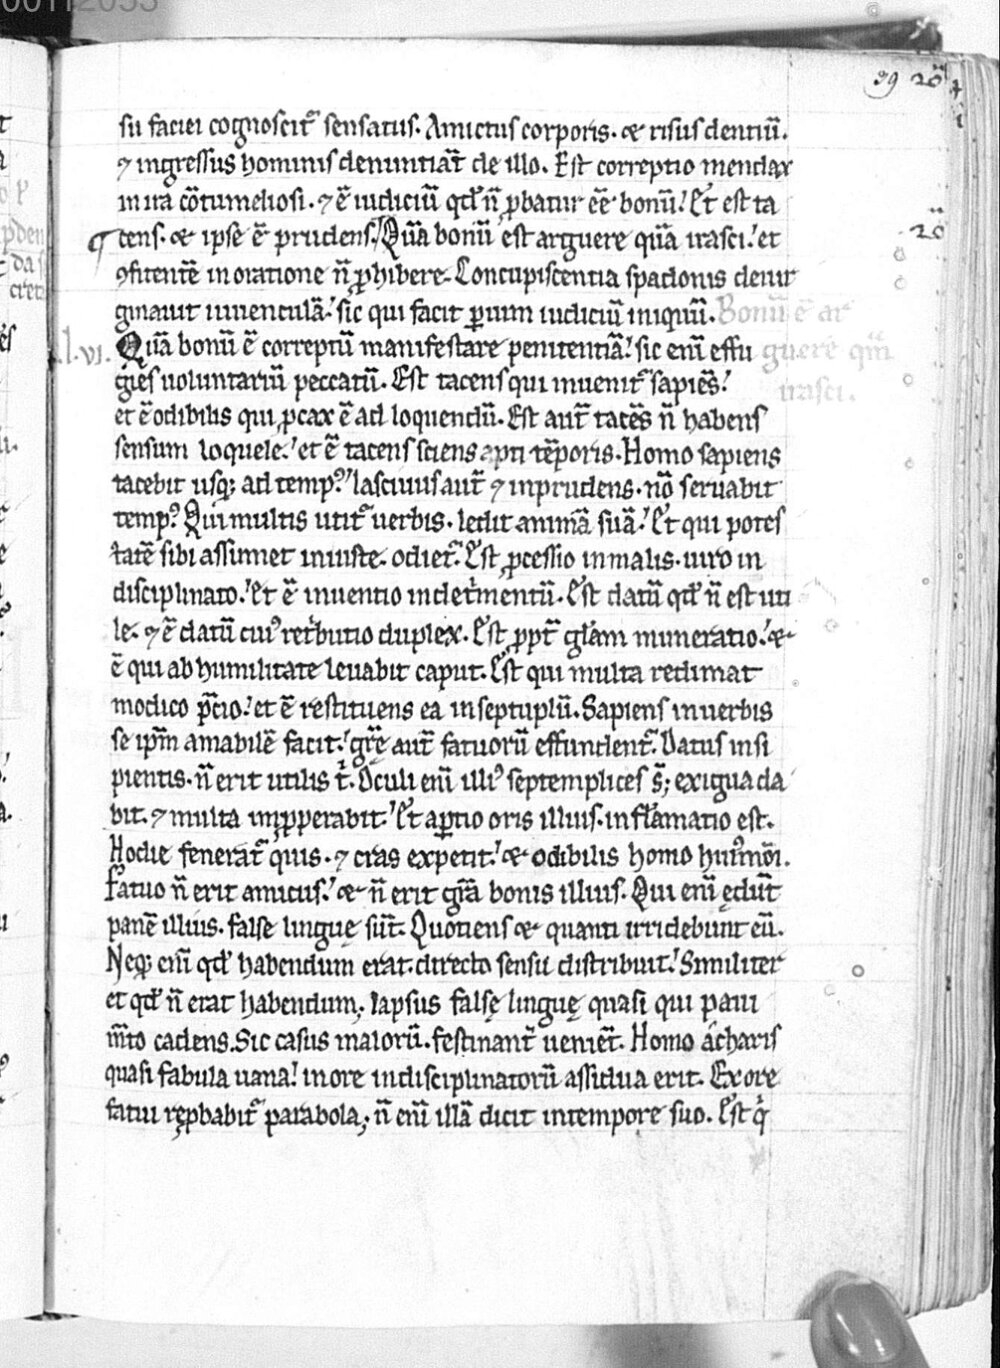 00112053
39 20
su faciei cognoscit᷑ sensatus. Amictus corporis. & risus dentiū.
⁊ ingressus hominis denuntiāt de illo. Est correptio mendax
in ira cōtumeliosi. ⁊ ē iudiciū qđ n̄ ꝓbatur eē bonū. Et est ta
20
cens. & ipse ē prudens. Quā bonū est arguere quā irasci. et
ꝯfitentē in oratione n̄ ꝓhibere. Concupiscentia spadonis deuir
ginauit iuuenculā. sic qui facit ꝑ uim iudiciū iniquū. Bonū ē ar
guere qm̄
irasci.
l.vi. Quā bonū ē correptū manifestare penitentiā. sic eni᷑ effu
gies uoluntariū peccatū. Est tacens qui inuenit᷑ sapiēs.
et ē odibilis qui ꝓcax ē ad loquendū. Est aut᷑ tacēs n̄ habens
sensum loquele. et ē tacens sciens apti tēporis. Homo sapiens
tacebit usq; ad tempꝰ. lasciuus aut᷑ ⁊ inprudens. nō seruabit
tempꝰ. Qui multis utit᷑ uerbis. ledit animā suā. Et qui potes
tatē sibi assumet iniuste. odiet᷑. Est ꝓcessio in malis. uiro in
disciplinato. Et ē inuentio in det᷑mentū. Est datū qđ n̄ est uti
le. ⁊ ē datū cuiꝰ ret᷑butio duplex. Est ꝓpt᷑ gl̄am minoratio. &
ē qui ab humilitate leuabit caput. Est qui multa redimat
modico p̄cio. et ē restituens ea in septuplū. Sapiens in uerbis
se ip̄m amabilē facit. gr̄ę aut᷑ fatuorū effundent᷑. Datus insi
pientis. n̄ erit utilis t᷑. Oculi eni᷑ illiꝰ septemplices s̄; exigua da
bit. ⁊ multa inꝓpperabit. Et aꝑtio oris illius. inflāmatio est.
Hodie fenerat᷑ quis. ⁊ cras expetit. & odibilis homo huiꝰmōi.
Fatuo n̄ erit amicus. & n̄ erit gr̄a bonis illius. Qui eni᷑ ędūt
panē illius. false linguę sūt. Quotiens & quanti irridebunt eū.
Neq; eni᷑ qđ habendum erat. directo sensu distribuit. Similiter
et qđ n̄ erat habendum; lapsus falsę linguę quasi qui paui
m̄to cadens. Sic casus malorū. festinant᷑ ueniet. Homo acharis
quasi fabula uana. in ore indisciplinatorū assidua erit. Ex ore
fatui ręꝓbabit᷑ parabola; n̄ eni᷑ illā dicit in tempore suo. Est q᷑